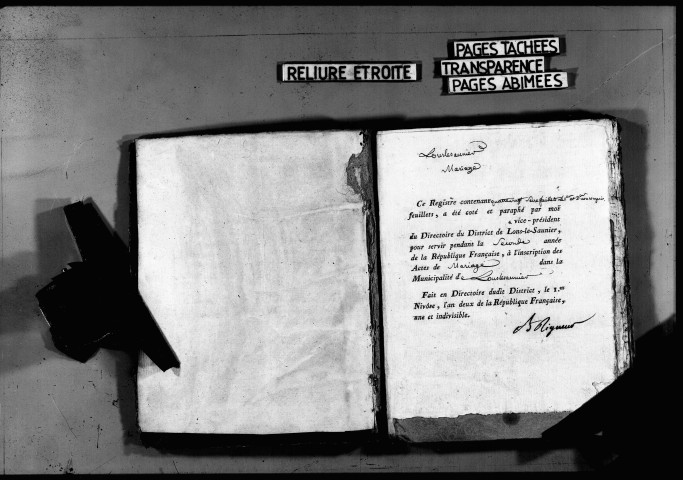 RELIURE ETROITE
PAGES TACHEES
TRANSPARENCE
PAGES ABIMEES
Lonslesaunier
Mariage
Ce Registre contenant
feuillets, a été coté et paraphé par moi
vice-président
du Directoire du District de Lons-le-Saunier,
pour servir pendant la Seconde année
de la République Française, à l'inscription des
Actes de Mariage dans la
Municipalité de Lonslesaunier
Fait en Directoire dudit District, le 1.er
Nivôse, l'an deux de la République Française,
une et indivisible.